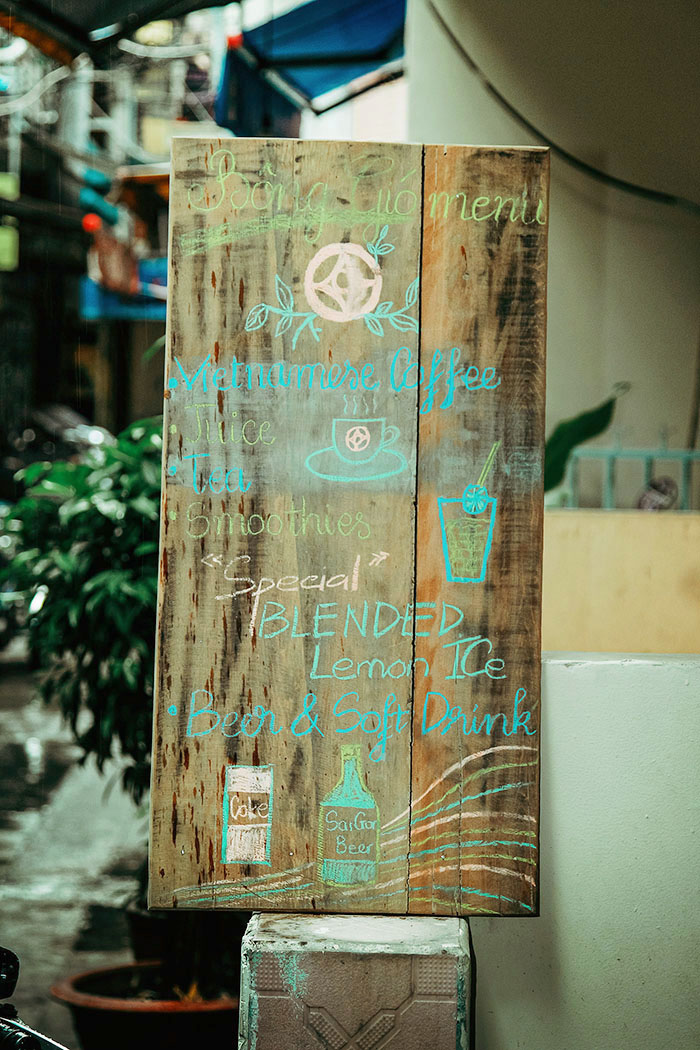 Bông Gió menu
• Vietnamese Coffee
• Juice
• Tea
• Smoothies
"Special"
BLENDED
Lemon ICe
• Beer & Soft Drink
Coke
SaiGon
Beer